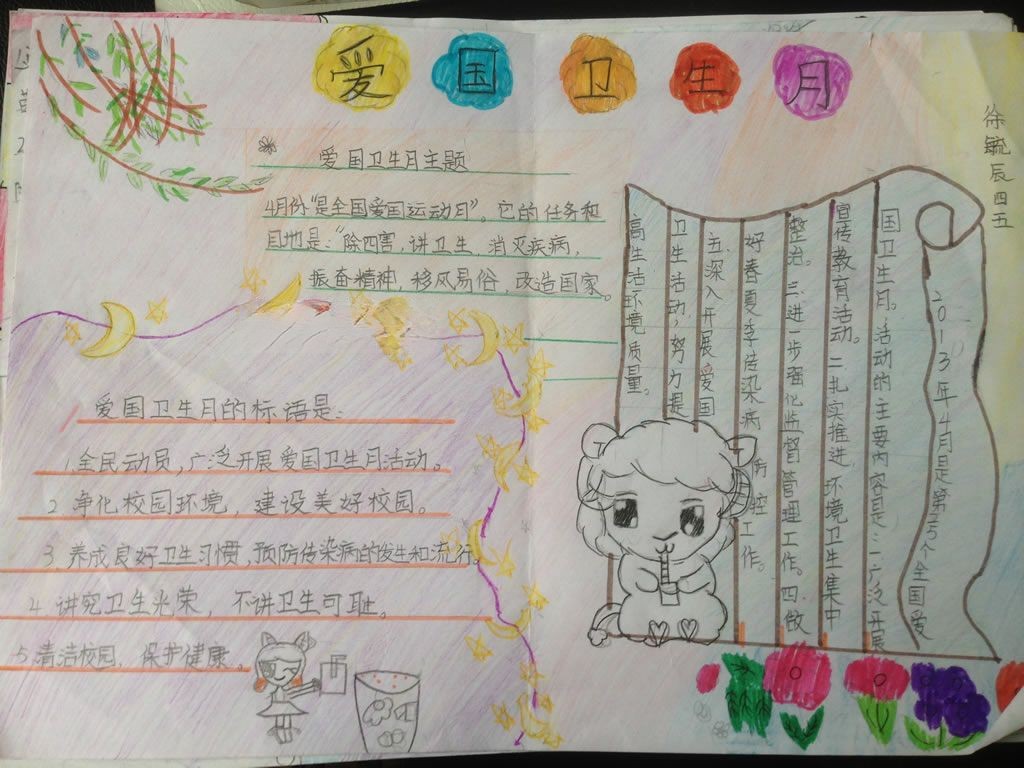 爱国卫生月
徐毓辰四五
爱国卫生月主题
4月份“是全国爱国运动月”。它的任务和
目地是:“除四害,讲卫生,消灭疾病,
振奋精神,移风易俗,改造国家。
2013年4月是第25个全国爱
国卫生月。活动的主要内容是:一广泛开展
宣传教育活动。二扎实推进环境卫生集中
整治。三进一步强化监督管理工作。四.做
好春夏季传染病防控工作。
五.深入开展爱国
卫生活动,努力提
高生活环境质量。
爱国卫生月的标语是:
1.全民动员,广泛开展爱国卫生月活动。
2净化校园环境,建设美好校园。
3.养成良好卫生习惯,预防传染病的发生和流行。
4.讲究卫生光荣,不讲卫生可耻。
5.清洁校园,保护健康。